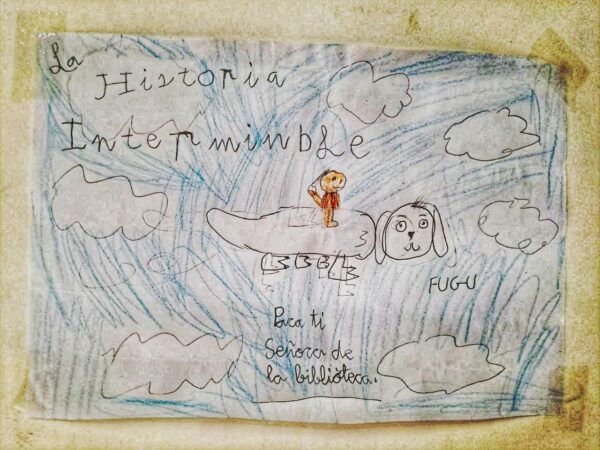 La
Historia
Interminble
FUGU
Para ti
Señora de
la biblioteca.